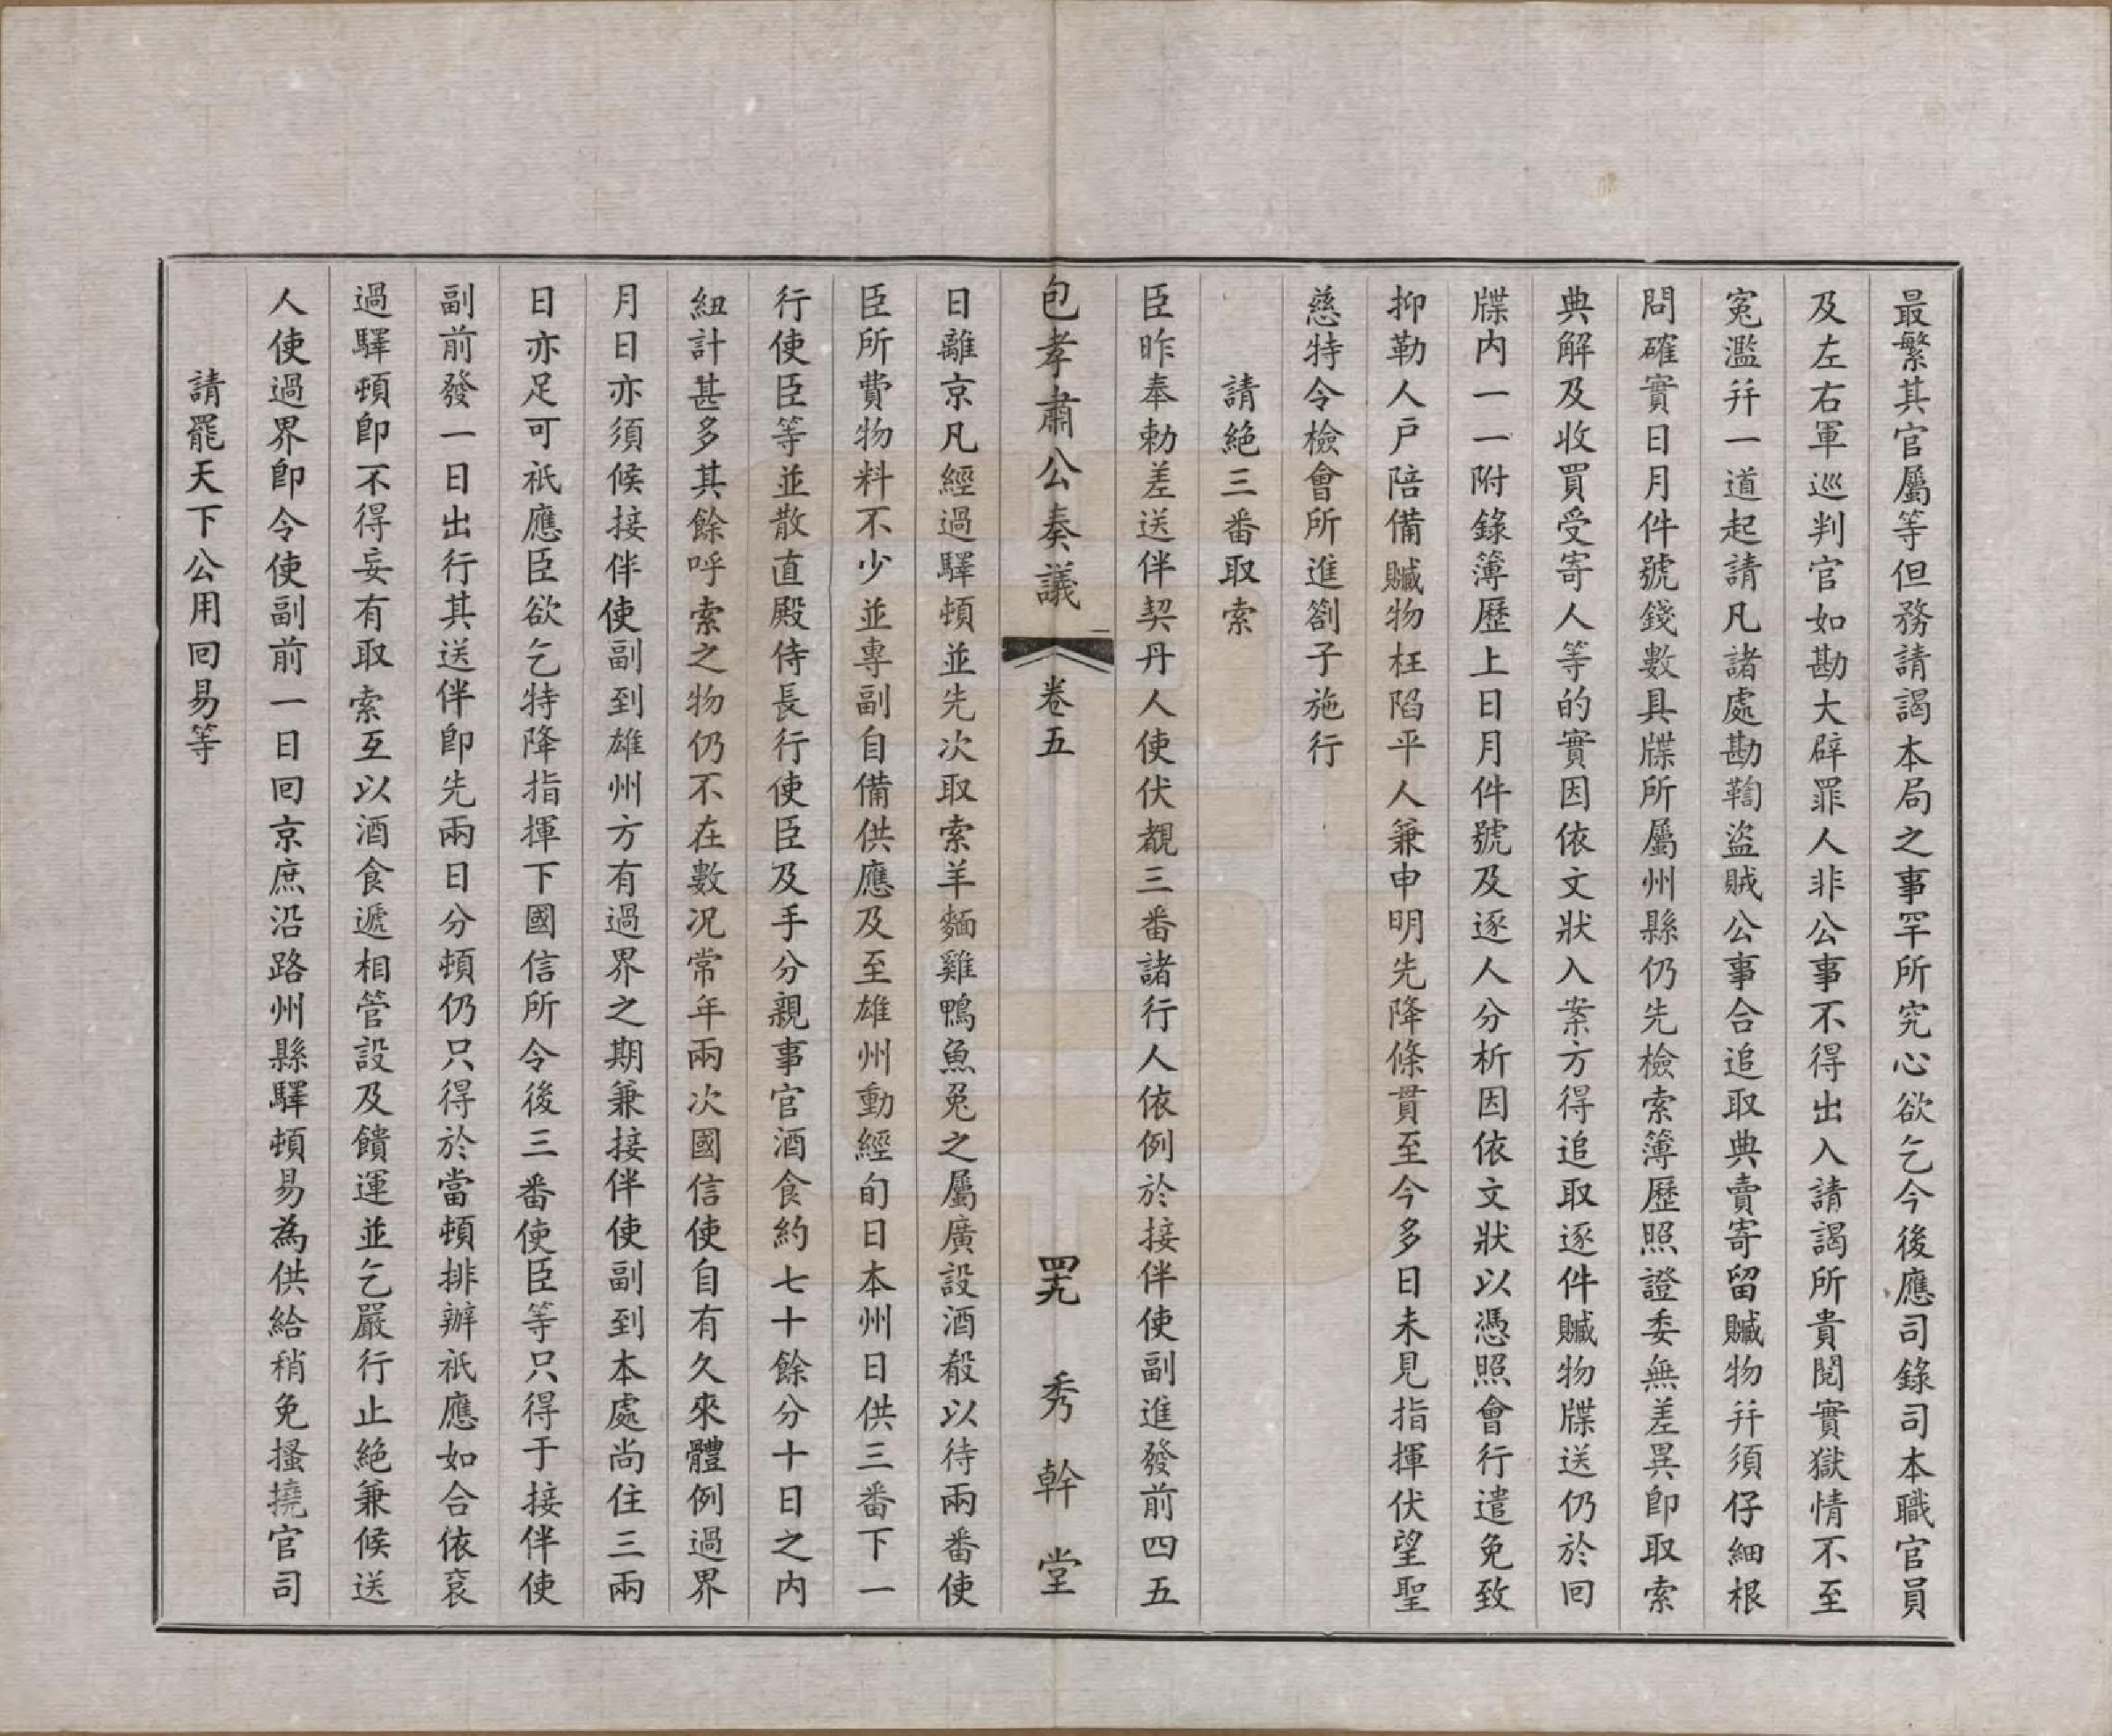 最繁其官屬等但務請謁本局之事罕所究心欲乞今後應司錄司本職官員
及左右軍巡判官如勘大辟罪人非公事不得出入請謁所貴閱實獄情不至
寃濫幷一道起請凡諸處勘鞫盜賊公事合追取典賣寄留贓物幷須仔細根
問確實日月件號錢數具牒所屬州縣仍先檢索簿歷照證委無差異卽取索
典解及收買受寄人等的實因依文狀入案方得追取逐件贓物牒送仍於回
牒內一一附錄簿歷上日月件號及逐人分析因依文狀以憑照會行遣免致
抑勒人戶陪備贓物枉陷平人兼申明先降條貫至今多日未見指揮伏望聖
慈特令檢會所進劄子施行
請絕三番取索
臣昨奉勅差送伴契丹人使伏覩三番諸行人依例於接伴使副進發前四五
包孝肅公奏議 卷五 四九 秀幹堂
日離京凡經過驛頓並先次取索羊麵雞鴨魚兔之屬廣設酒殽以待兩番使
臣所費物料不少並專副自備供應及至雄州動經旬日本州日供三番下一
行使臣等並散直殿侍長行使臣及手分親事官酒食約七十餘分十日之內
紐計甚多其餘呼索之物仍不在數况常年兩次國信使自有久來體例過界
月日亦須候接伴使副到雄州方有過界之期兼接伴使副到本處尚住三兩
日亦足可祇應臣欲乞特降指揮下國信所令後三番使臣等只得于接伴使
副前發一日出行其送伴卽先兩日分頓仍只得於當頓排辦祇應如合依裒
過驛頓卽不得妄有取索互以酒食遞相管設及饋運並乞嚴行止絕兼候送
人使過界卽令使副前一日回京庶沿路州縣驛頓易為供給稍免搔撓官司
請罷天下公用回易等